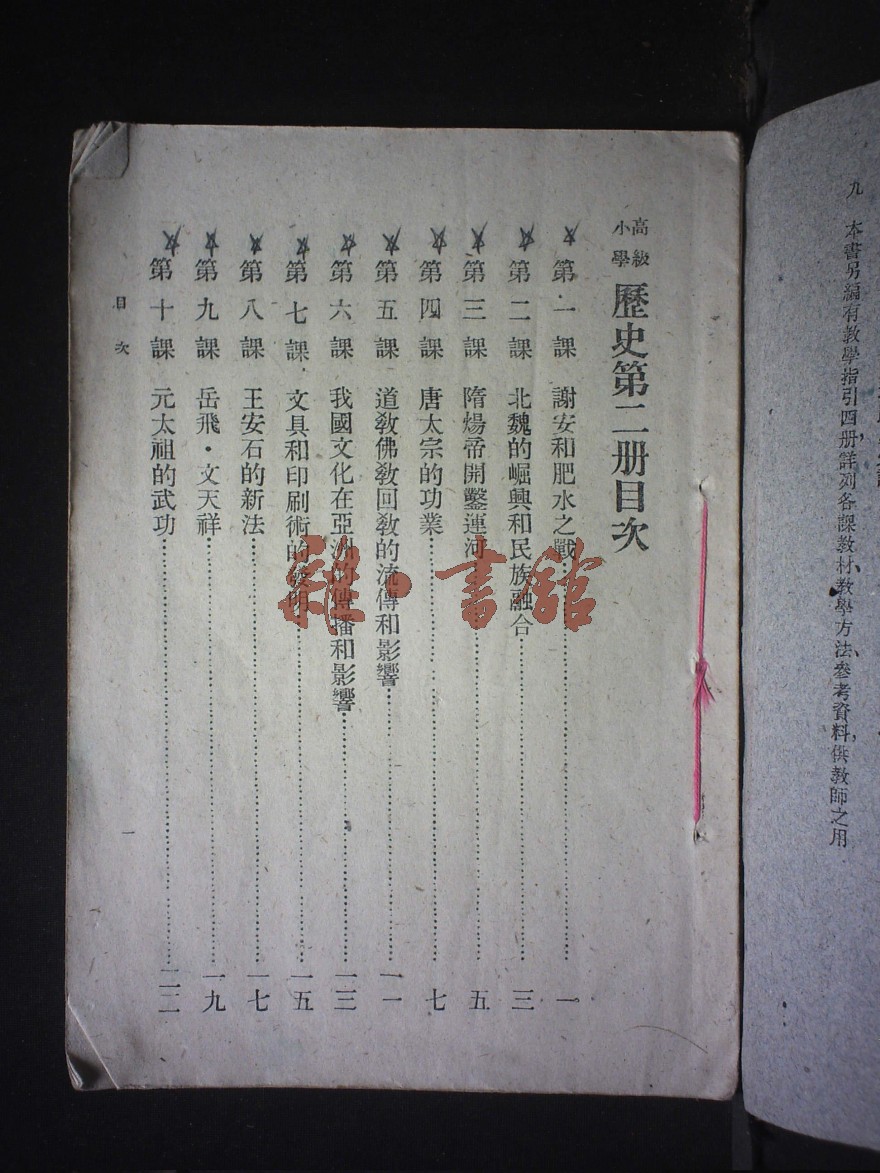 九 本書另編有教學指引四册詳列各課教材教學方法參考資料供教師之用
高級小學 歷史第二册目次
第一課 謝安和肥水之戰……一
第二課 北魏的崛興和民族融合……三
第三課 隋煬帝開鑿運河……五
第四課 唐太宗的功業……七
第五課 道教佛教回教的流傳和影響……一一
第六課 我國文化在亞洲的傳播和影響……一三
第七課 文具和印刷術的發明……一五
第八課 王安石的新法……一七
第九課 岳飛・文天祥……一九
第十課 元太祖的武功……二二
目次
一
雜·書館